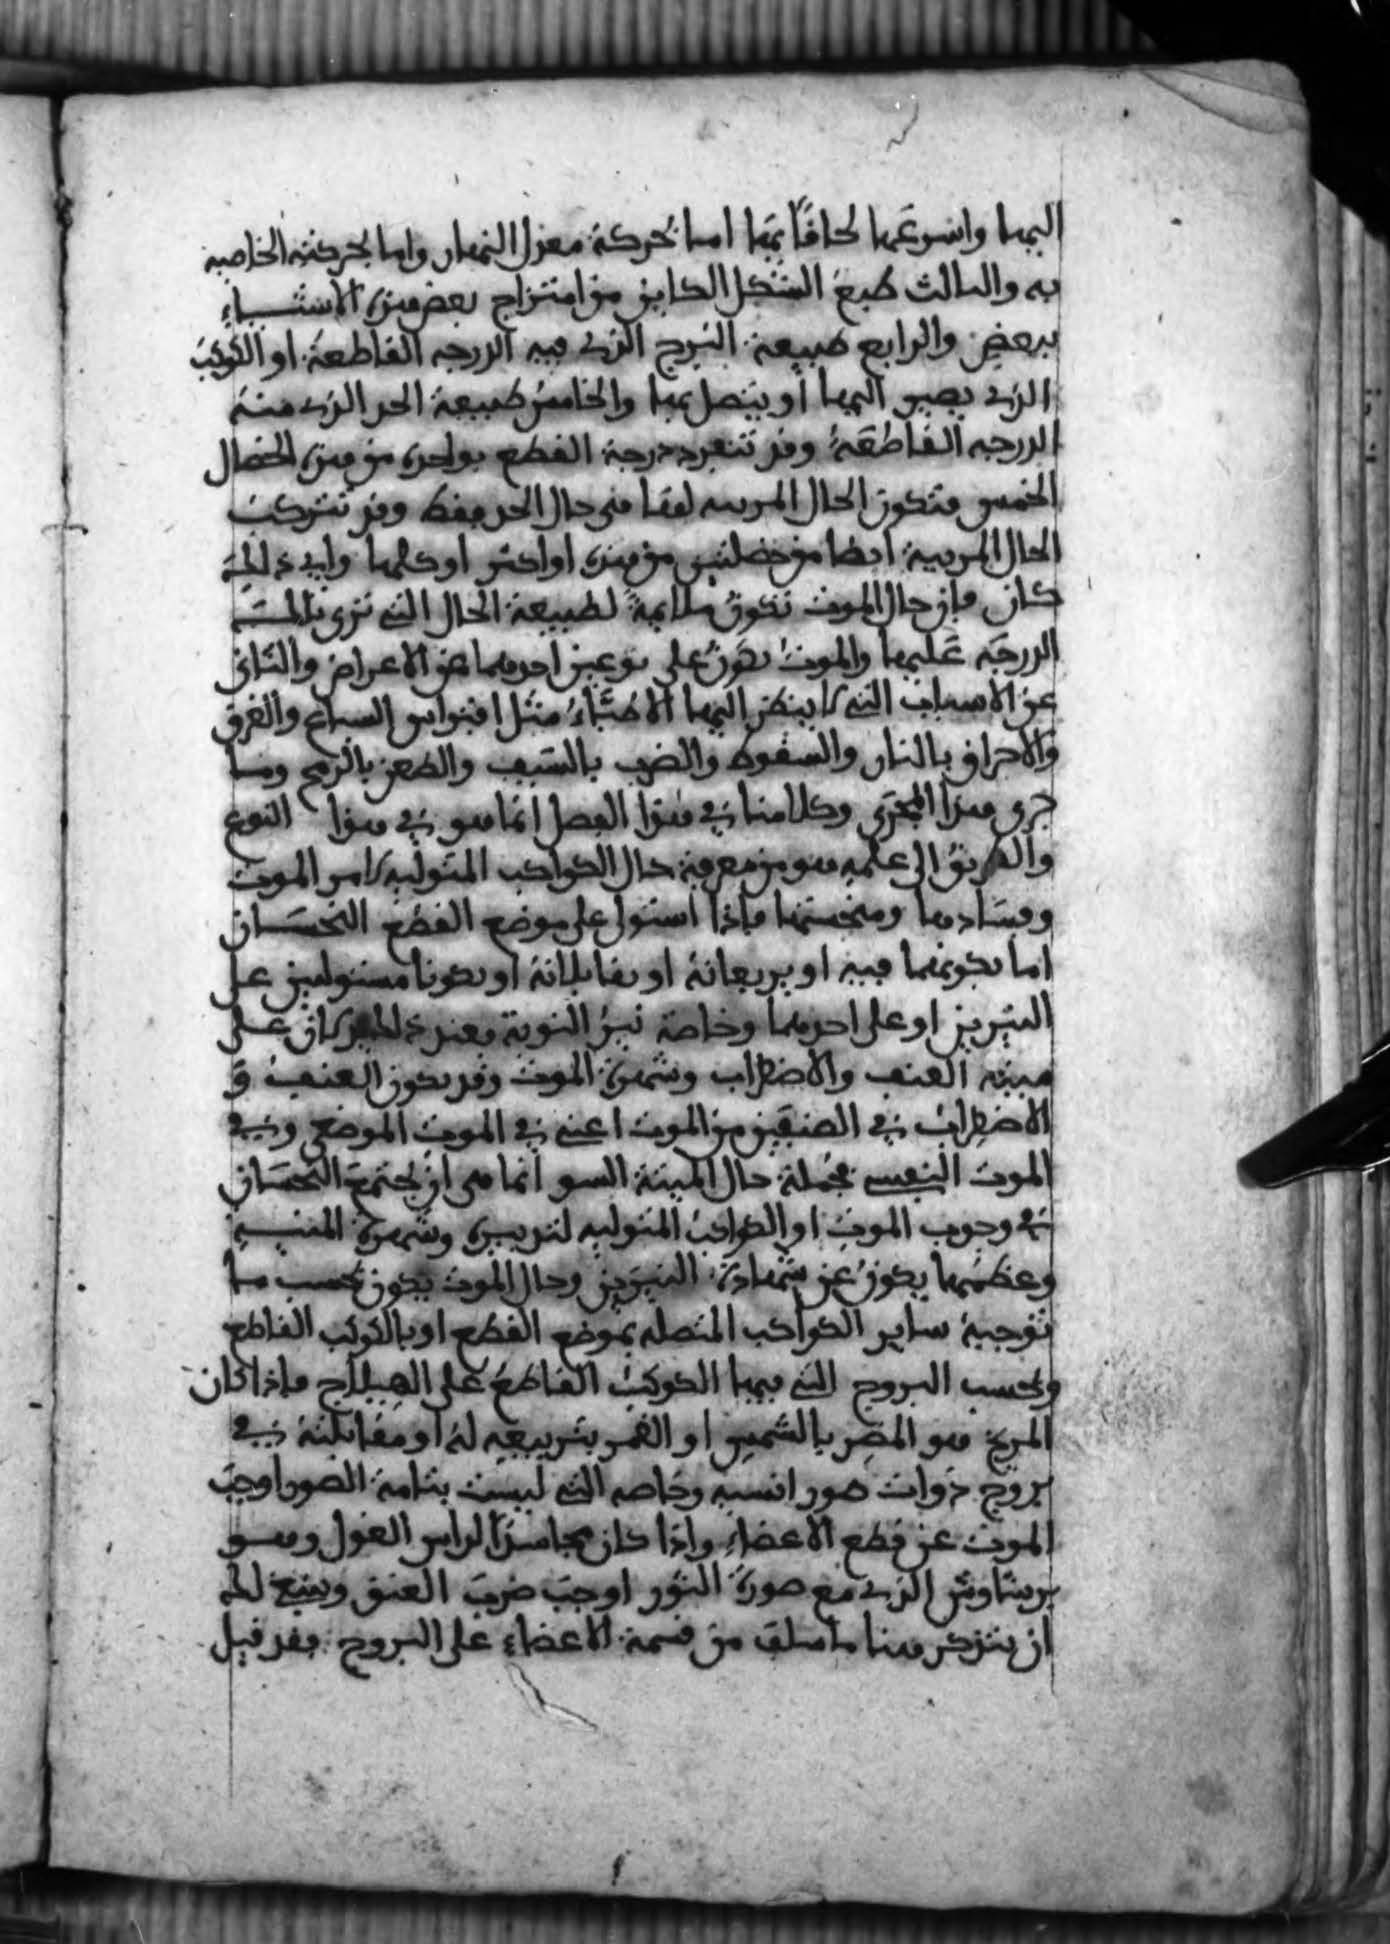 اليها واسرعها لحاقا بها اما بحركة معدل النهار واما بحركته الخاصية
به والثالث طبع الشكل الكاين من امتزاج بعض هذه الاشياء
ببعض والرابع طبيعة البرج الذي فيه الدرجه القاطعة او الكوكب
الذي يصير اليها او يتصل بها والخامس طبيعة الحد الذي منه
الدرجه القاطعة وقد تنفرد درجة القطع بواحدة من هذه الخصال
الخمس فتكون الحال المرييه لفقا من حال الحد فقط وقد تتركب
الحال المريية ايضا من خصلتين من هذه او اكثر او كلها واي ذلك
كان فان حال الموت تكون ملايمة لطبيعة الحال التي تدي بالمت
الدرجه عليها والموت يكون على نوعين احدهما عن الاعراض والثاني
عن الاسباب التي لا ينظر اليها الاطباء مثل افتراس السباع والغرق
والاحراق بالنار والسقوط والضرب بالسيف والطعن بالرمح وما
جرى هذا المجرى وكلامنا في هذا الفصل انما هو في هذا النوع
والطريق الى علمه هو من معرفة حال الكواكب المتوليه لامر الموت
وفسادها ومنحستها فاذا استولى على موضع القطع النحسان
اما بكونهما فيه او يربعانه او يقابلانه او يكونا مستوليين على
النيرين او على احدهما وخاصة نير النوبة فعند ذلك كان على
ميته العنف والاضطراب وشهرة الموت وقد يكون العنف و
الاضطراب في الصنفين من الموت اعني في الموت الموضعي وفي
الموت النفسي فجملة حال الميتة السو انما هى ان يجتمع النحسان
في وجوب الموت او الكواكب المتوليه لتدبيره وشهرة المنيه
وعظمها يكون عن شهادة النيرين وحال الموت يكون بحسب ما
توجبه ساير الكواكب المتصله بموضع القطع او بالكوكب القاطع
وبحسب البروج التي فيها الكوكب القاطع على الهيلاج فاذا كان
المريخ هو المضر بالشمس او القمر بتربيعه له او مقابلته في
بروج ذوات صور انسيه وخاصه التي ليست بتامة الصور اوجب
الموت عن قطع الاعضاء واذا كان مجامعا لراس الغول وهو
برشاوش الذي مع صورة الثور اوجب ضرب العنق وينبغ لك
ان تتذكر هنا ما سلف من قسمة الاعضاء على البروج فقد قيل